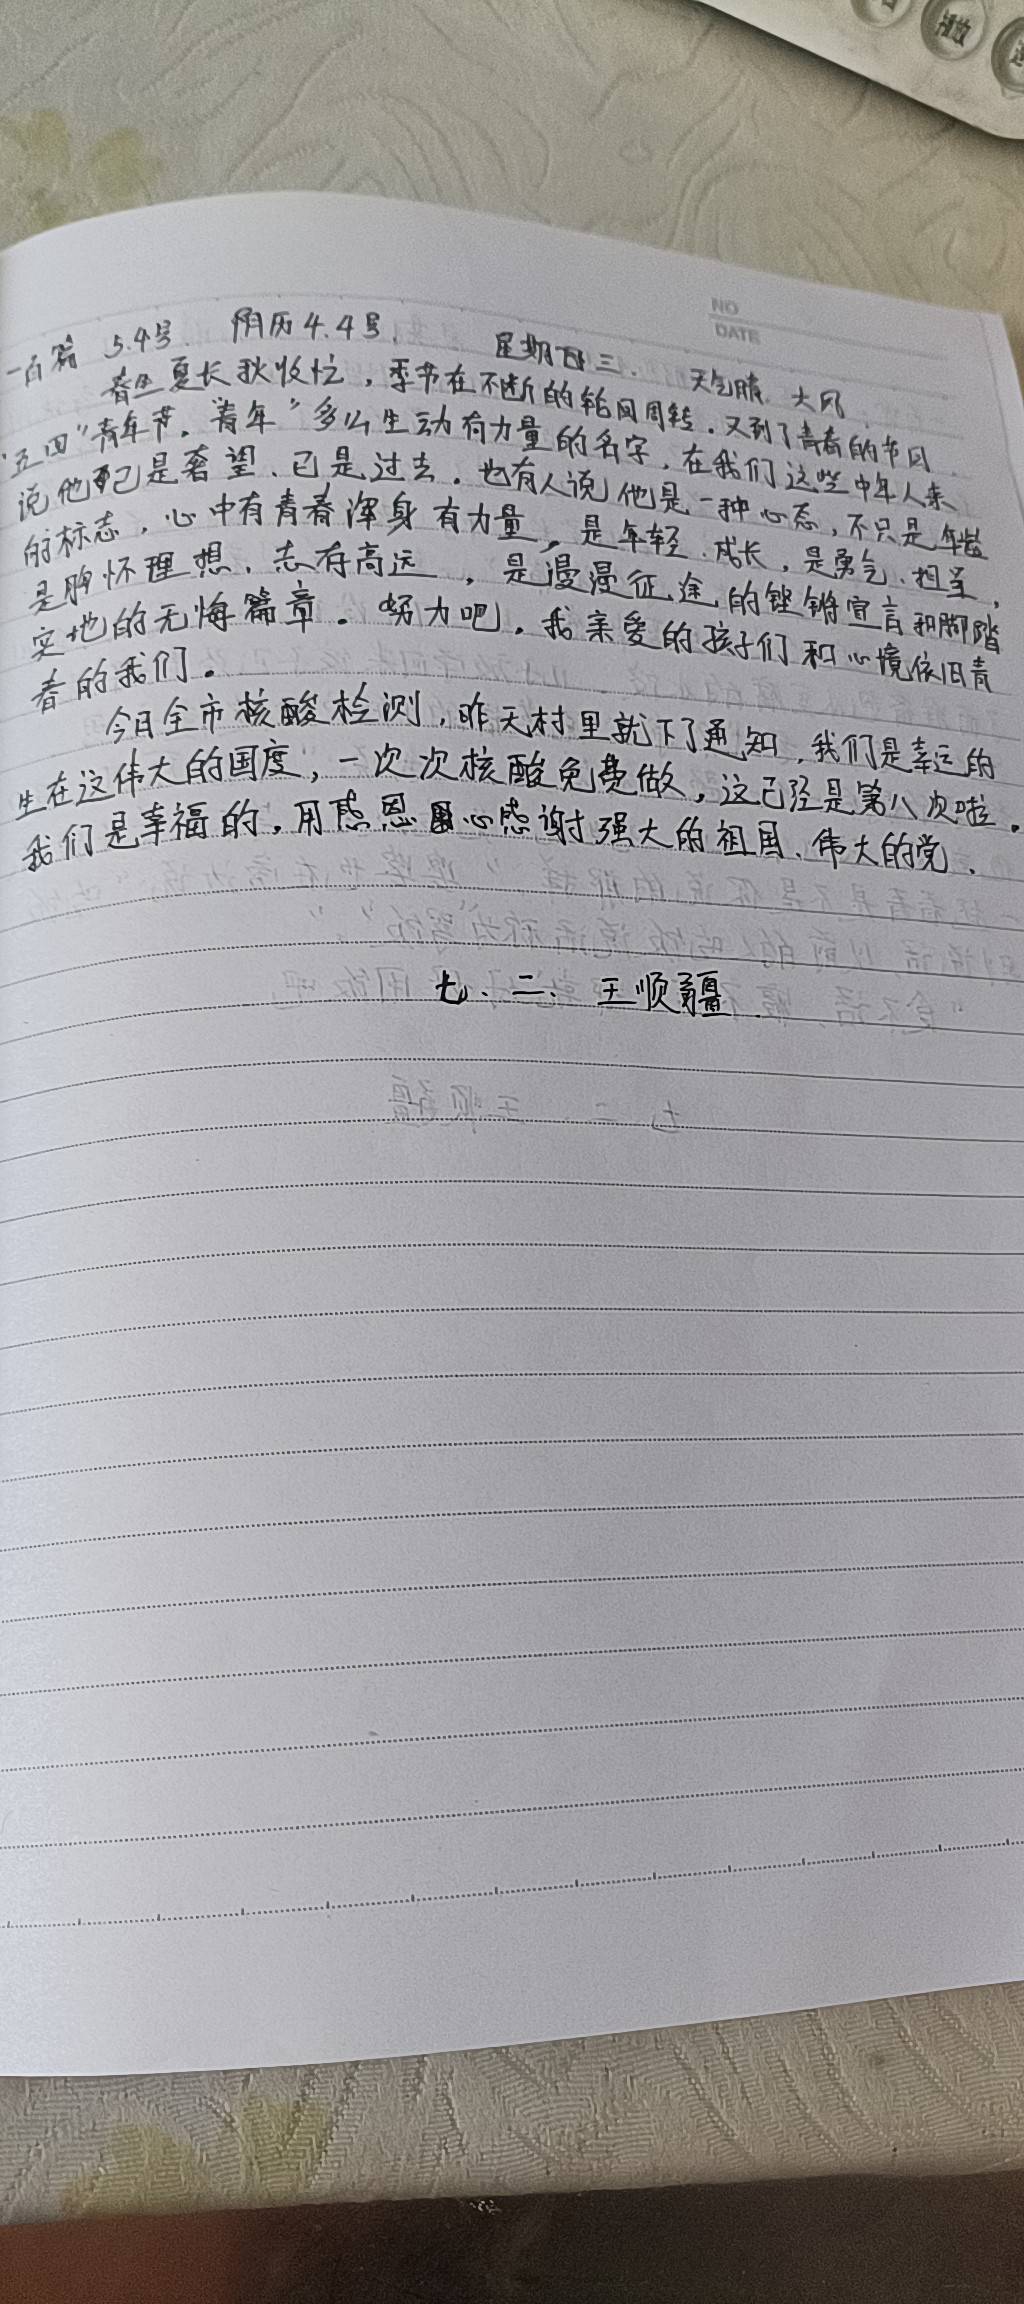 播放
NO
DATE
一百篇 5.4号. 阴历4.4号. 星期三. 天气晴. 大风
春生夏长秋收忙，季节在不断的轮回周转.又到了青春的节日
"五四"青年节."青年"多么生动有力量的名字，在我们这些中年人来
说他已是奢望、已是过去，也有人说他是一种心态，不只是年龄
的标志，心中有青春浑身有力量，是年轻、成长，是勇气、担当，
是胸怀理想、志存高远，是漫漫征途的铿锵宣言和脚踏
实地的无悔篇章。努力吧，我亲爱的孩子们和心境依旧青
春的我们。
今日全市核酸检测，昨天村里就下了通知，我们是幸运的
生在这伟大的国度，一次次核酸免费做，这已经是第八次啦。
我们是幸福的，用感恩心感谢强大的祖国、伟大的党.
七、二、王顺疆